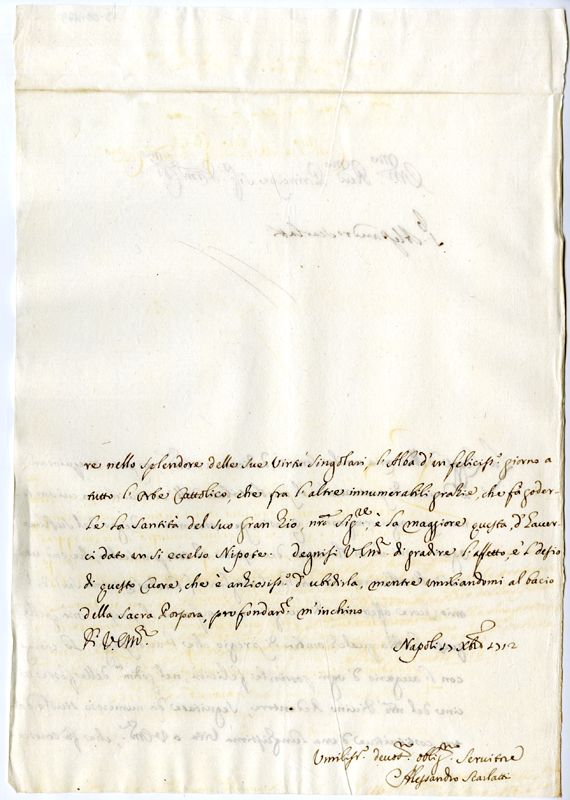 re nello splendore delle sue Virtù Singolari, l'Alba d'un feliciss.º giorno a
tutto l'Orbe Cattolico, che fra l'altre innumerabili grazie, che fà goder-
le La Santità del suo gran Zio, nrõ Sig.re è la maggiore questa, d'haver-
ci dato un si eccelso Nipote. Degnisi V. Em.ª di gradire l'affetto, e 'l desio
di questo Cuore, che è anziosiss.º d'ubidirla, mentre umiliandomi al bacio
della Sacra Porpora, profondam.te m'inchino
Di V. Em.ª
Napoli 17 Xbre 1712
Umiliss.º devot.º oblig.º Servitore
Alessandro Scarlatti